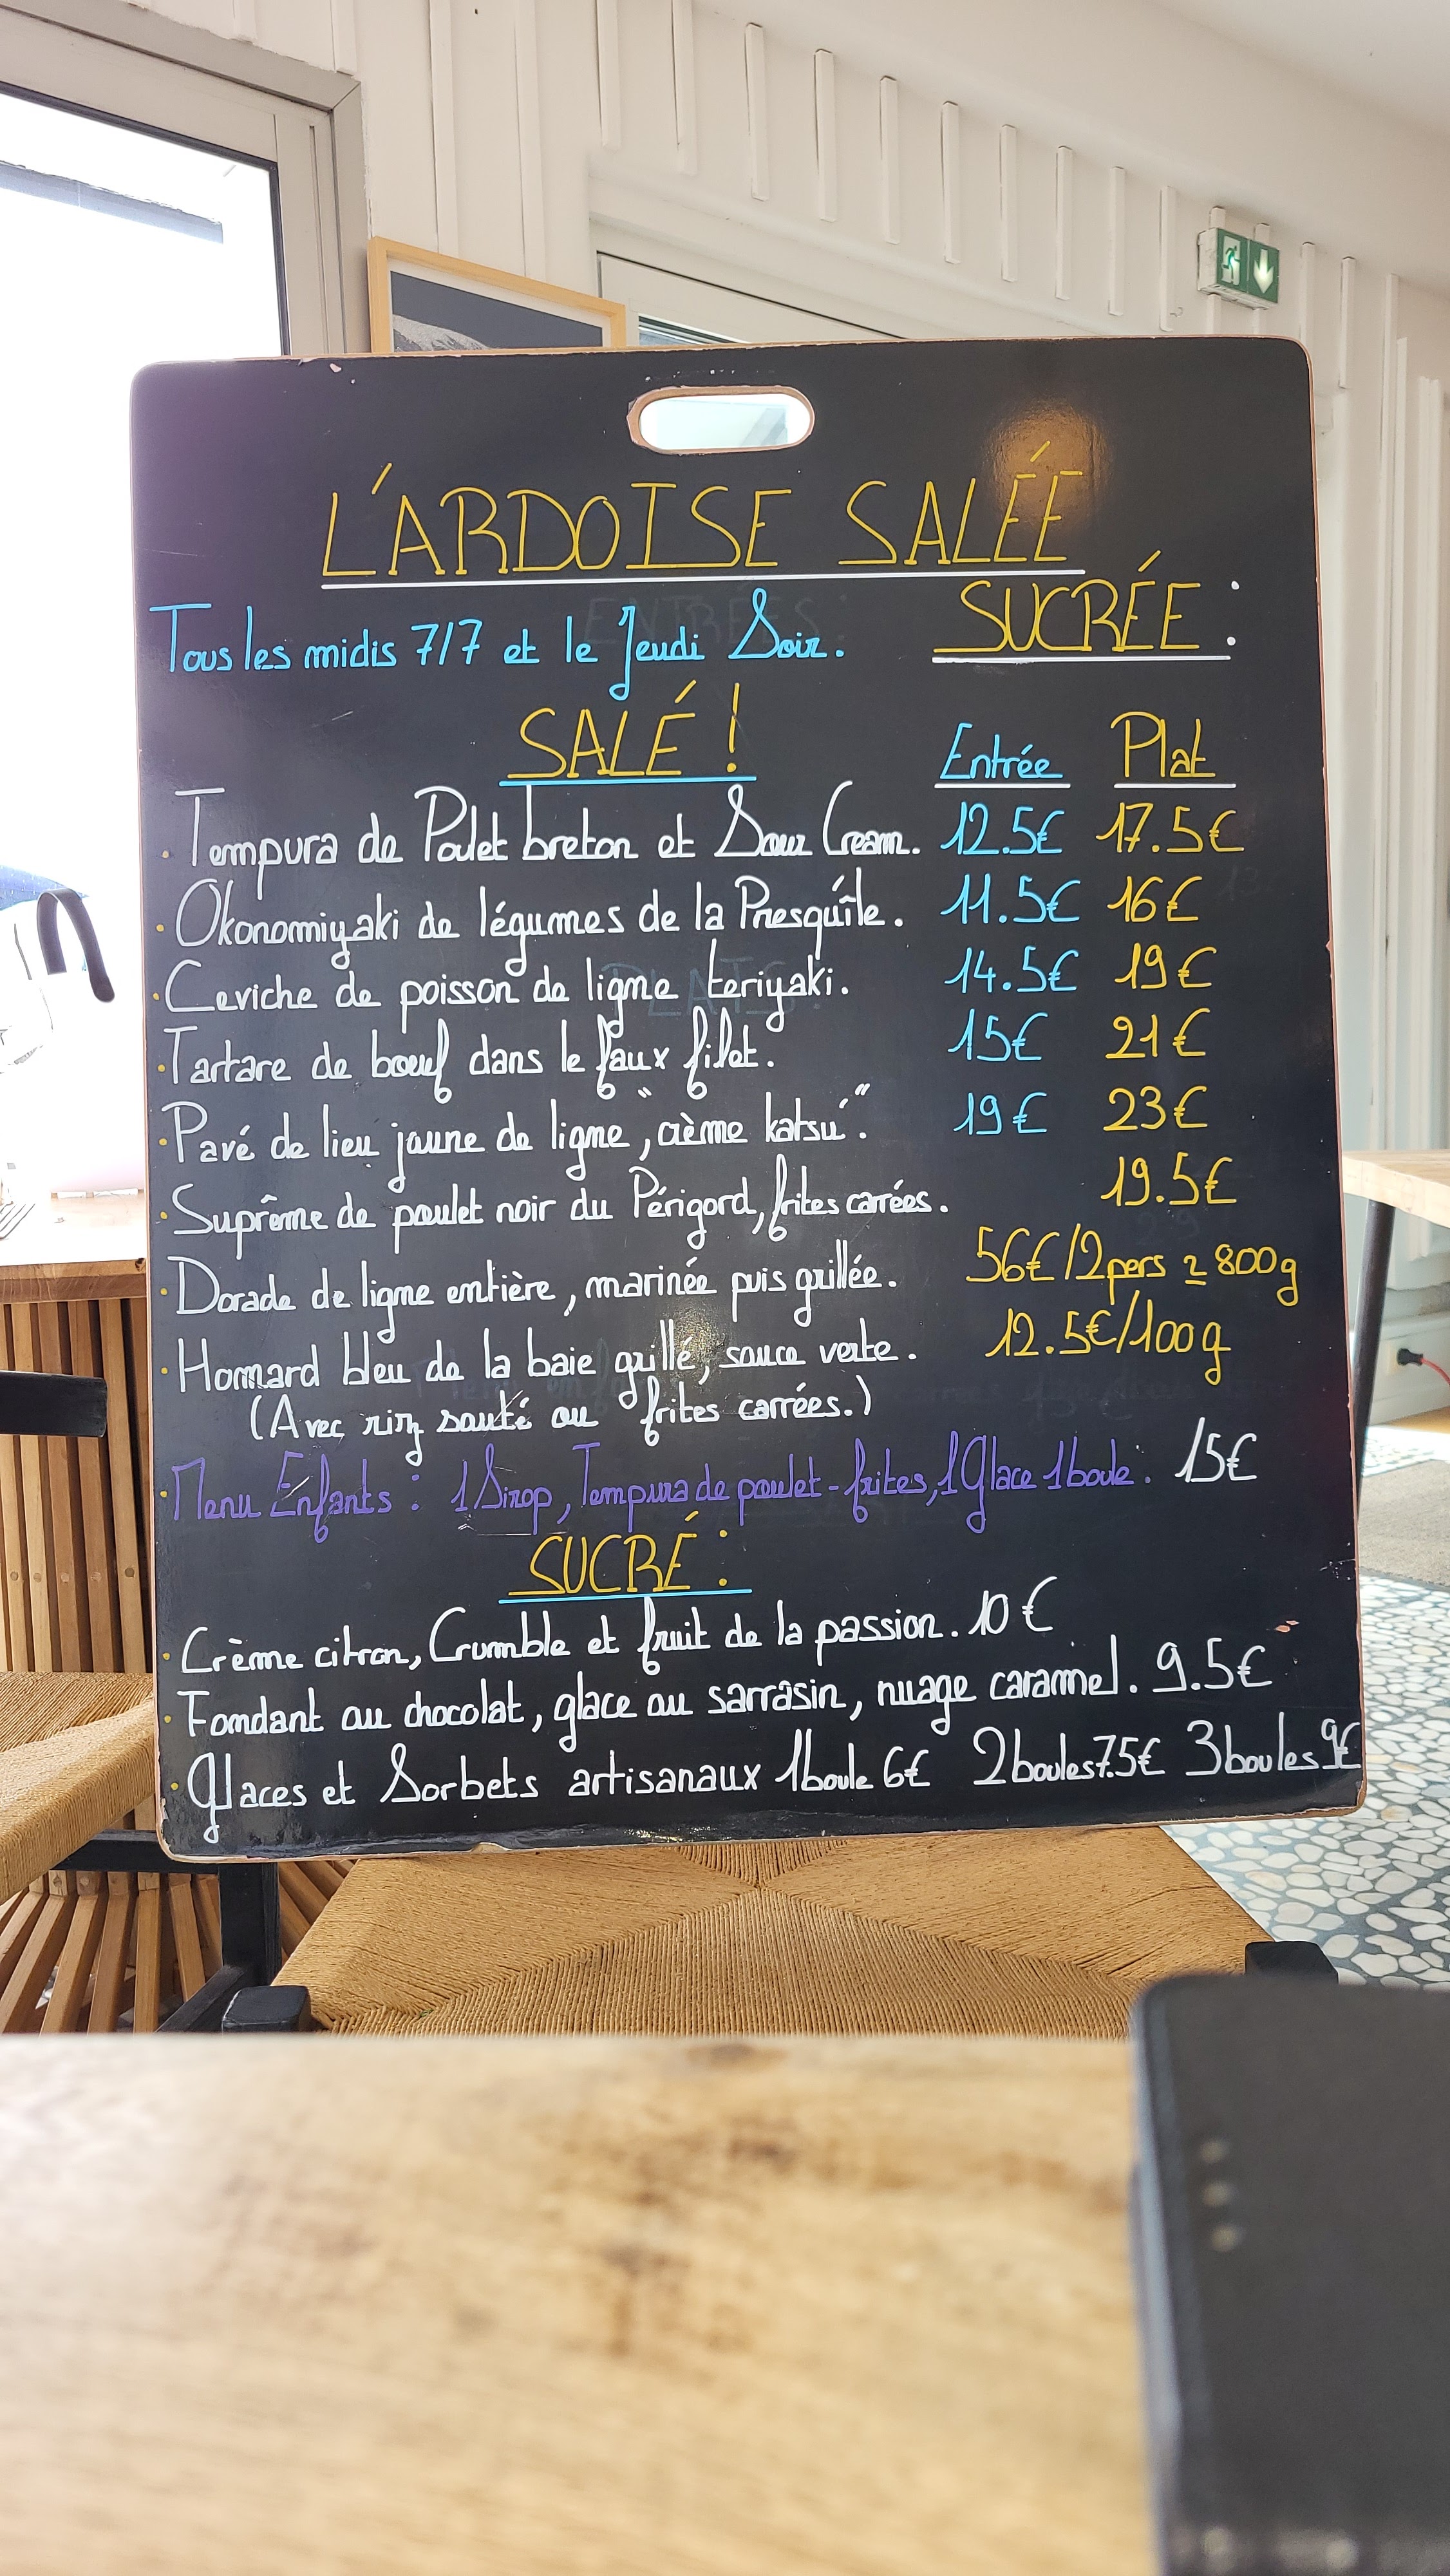 L'ARDOISE SALÉE
SUCRÉE :
Tous les midis 7/7 et le Jeudi Soir.
SALÉ !
Entrée Plat
· Tempura de Poulet breton et Sour Cream. 12.5€ 17.5€
· Okonomiyaki de légumes de la Presqu'île. 11.5€ 16€
· Ceviche de poisson de ligne teriyaki. 14.5€ 19€
· Tartare de bœuf dans le faux filet. 15€ 21€
· Pavé de lieu jaune de ligne, "crème katsu". 19€ 23€
· Suprême de poulet noir du Périgord, frites carrées. 19.5€
· Dorade de ligne entière, marinée puis grillée. 56€/2pers ≃ 800g
· Homard bleu de la baie grillé, sauce verte. 12.5€/100g
(Avec riz sauté ou frites carrées.)
· Menu Enfants : 1 Sirop, Tempura de poulet-frites, 1 Glace 1 boule. 15€
SUCRÉ :
· Crème citron, Crumble et fruit de la passion. 10€
· Fondant au chocolat, glace au sarrasin, nuage caramel. 9.5€
· Glaces et Sorbets artisanaux 1 boule 6€ 2 boules 7.5€ 3 boules 9€